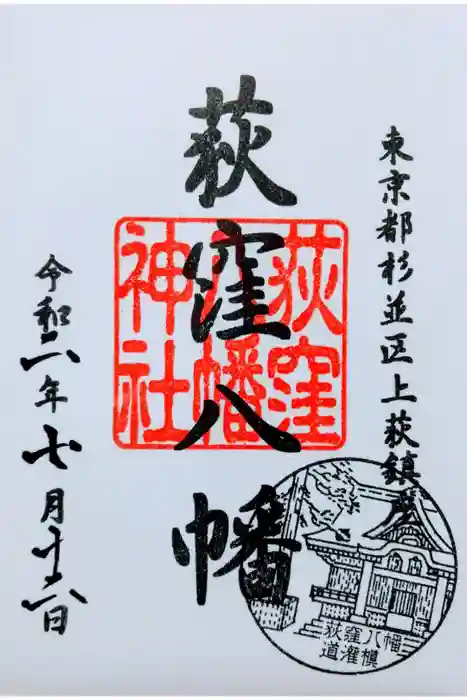 東京都杉並区上荻鎮座
荻窪八幡
荻窪
八幡
神社
令和二年七月十六日
荻窪八幡
道灌槇